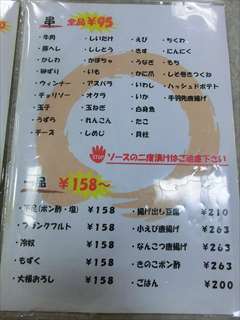 串 全品 ¥95
・牛肉
・豚へレ
・かしわ
・砂ずり
・ウィンナー
・チョリソー
・玉子
・うずら
・チーズ
・しいたけ
・ししとう
・かぼちゃ
・いも
・アスパラ
・オクラ
・玉ねぎ
・れんこん
・しめじ
・えび
・きす
・うなぎ
・かに爪
・いわし
・いか
・白身魚
・たこ
・貝柱
・ちくわ
・にんにく
・もち
・しそ巻きつくね
・ハッシュドポテト
・手羽先唐揚げ
STOP ソースの二度漬けはご遠慮下さい
品 ¥158~
(ポン酢・塩) ¥158
・フランクフルト ¥158
・冷奴 ¥158
・もずく ¥158
・大根おろし ¥158
・揚げ出し豆腐 ¥210
・小えび唐揚げ ¥263
・なんこつ唐揚げ ¥263
・きのこポン酢 ¥263
・ごはん ¥200